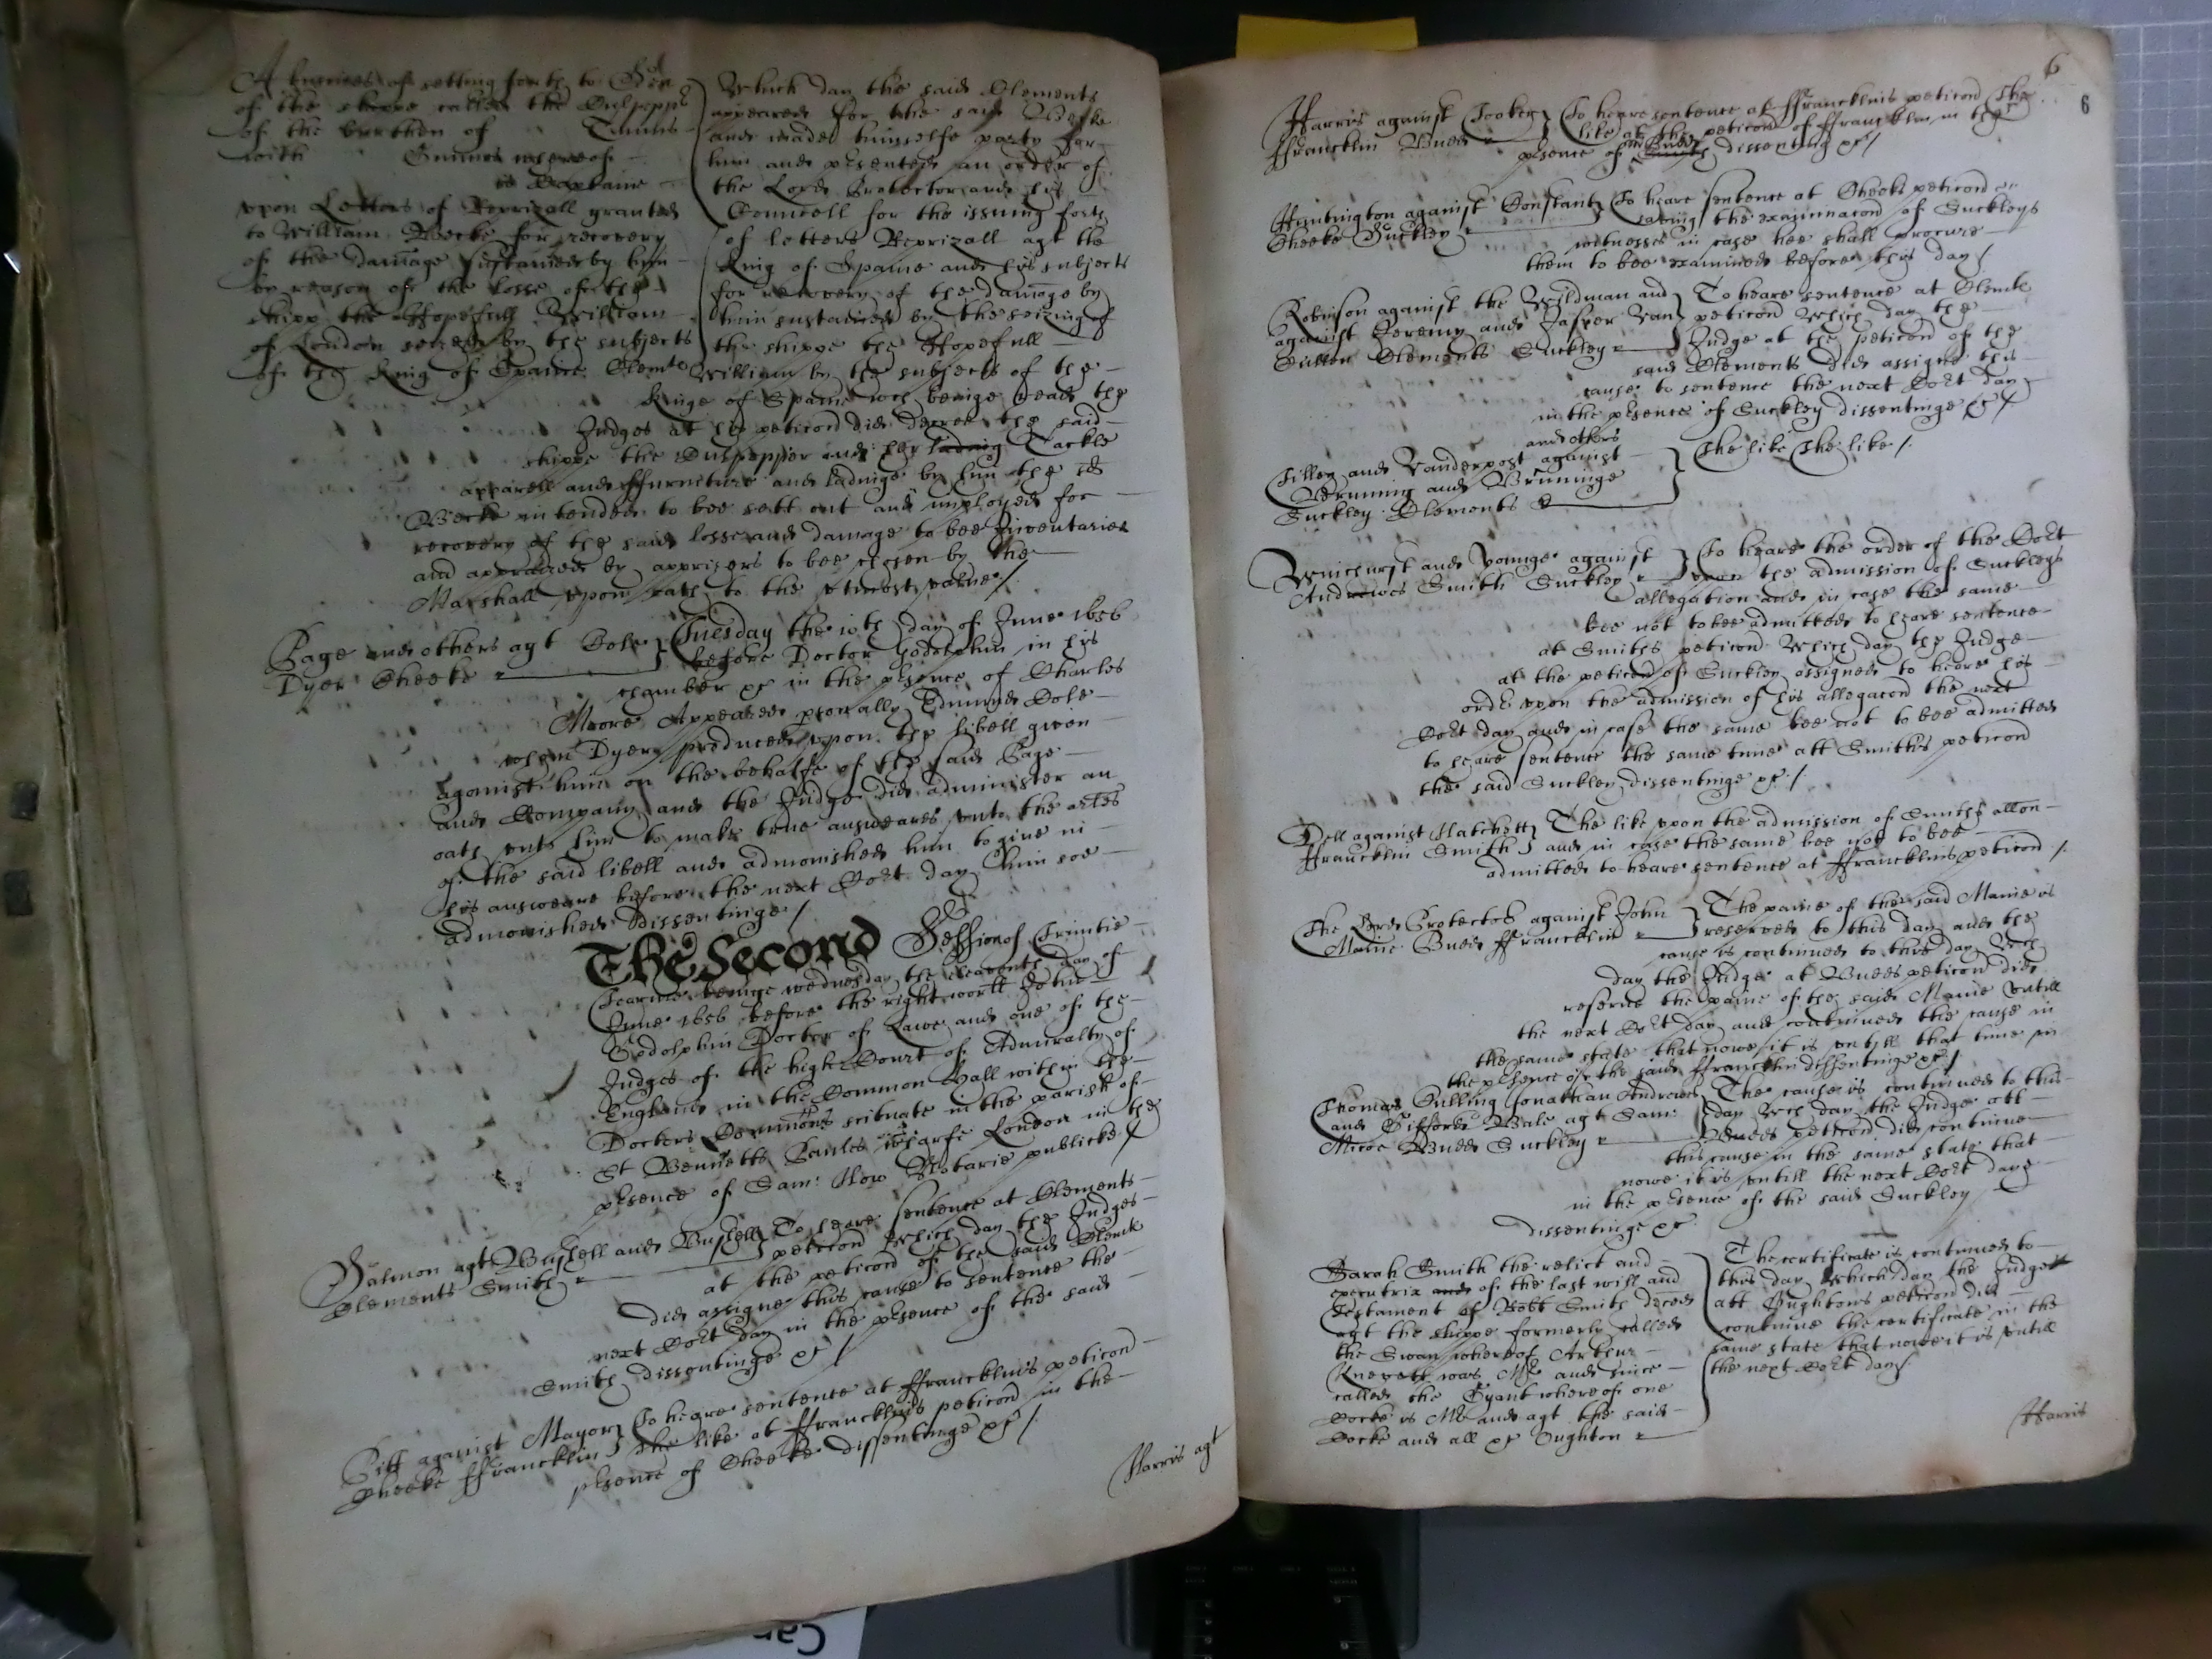 A busines of setting forth to Sea
of the shippe called the Culpepp
of the burthen of Tunns
with Gunnes whereof
is Captaine
upon Letters of Reprizall granted
to William Becke for recovery
of the damage sustained by him
by reason of the losse of the
shipp the Hopefull William
of London seized by the subjects
of the King of Spaine Clemts
Which day the said Clements
appeared for the said Becke
and made himselfe party for
him and psented an order of
the Lord Protector and his
Councell for the issuing forth
of letters Reprizall agt the
King of Spaine and his subjects
for recovery of the damage by
him sustained by the seizing of
the shippe the Hopefull
William by the subjects of the
Kinge of Spaine wch beinge read the
Judges at his peticon did decree the said
shippe the Culpepper and her lading Tackle
apparell and ffurniture and ladinge by him the sd
Becke intended to bee sett out and imployed for
recovery of the said losse and damage to bee Inventaried
and appraized by apprizers to bee chosen by the
Marshall upon oath to the utmost value /
Page and others agt Cole
Dyer Cheeke
Tuesday the 10th day of June 1656
before Doctor Godolphin in his
chamber &c in the psence of Charles
Moore Appeared psonally Edmund Cole
whom Dyer produced upon the libell given
against him on the behalfe of the said Page
and Company and the Judge did administer an
oath unto him to make true answeares unto the arles
of the said libell and admonished him to give in
his answeare before the next Cort day him soe
admonished dissentinge /
The Second Session of Trinitie
Tearme beinge wednesday the eleaventh day of
June 1656 before the right worll John
Godolphin Doctor of Lawe and one of the
Judges of the high Court of Admiralty of
England in the Common Hall within the
Doctors Commons scituate in the parish of
St Bennetts Paules wharfe London in the
psence of Sam: How Notarie publicke /
Salmon agt Bushell and Bushell
Clements Smith
To heare sentence at Clements
peticon Which day the Judges
at the peticon of the said Clemt
did assigne this cause to sentence the
next Cort day in the psence of the said
Smith dissentinge &c /
Pitt against Mayor
Cheeke ffrancklin
To heare sentence at ffrancklins peticon
The like at ffrancklins peticon in the
psence of Cheeke dissentinge &c /
Harris agt
6
6
Harris against Tooker
ffrancklin Budd
To heare sentence at ffrancklins peticon The
like at the peticon of ffrancklin in the
psence of Budd dissenting &c /
Huntington against Constant
Cheeke Suckley
To heare sentence at Cheeks peticon
saving the examinacon of Suckleys
witnesses in case hee shall procure
them to bee examined before this day /
Robinson against the Wildman and
against Jeremy and Jasper Van
Cullen Clements Suckley
To heare sentence at Clemts
peticon Which day the
Judge at the peticon of the
said Clements did assigne this
cause to sentence the next Cort day
in the psence of Suckley dissentinge &c /
and others
Tilley and Vanderpost against
Beruning and Brunninge
Suckley Clements
The like The like /
Whichurst and Younge against
Andrewes Smith Suckley
To heare the order of the Cort
upon the admission of Suckleys
allegation and in case the same
bee not to bee admitted to heare sentence
at Smiths peticon Which day the Judge
at the peticon of Suckley assigned to heare his
order upon the admission of his allegacon the next
Cort day and in case the same bee not to bee admitted
to heare sentence the same time att Smiths peticon
the said Suckley dissentinge &c /
Dell against Hatchett
ffrancklin Smith
The like upon the admission of Smiths allon
and in case the same bee not to bee
admitted to heare sentence at ffrancklins peticon /
The Lord Protector against John
Maine Budd ffrancklin
The paine of the said Maine is
reserved to this day and the
cause is continued to this day Wch
day the Judge at Budds peticon did
reserve the paine of the said Maine untill
the next Cort day and continued the cause in
the same state that nowe it is untill that time in
the psence of the said ffrancklin dissentinge &c /
Thomas Culling Jonathan Andrewes
and Gifford Bale agt Sam:
Micoe Budd Suckley
The cause is continued to this
day Wch day the Judge att
Budds peticon did continue
this cause in the same state that
nowe it is untill the next Cort day
in the psence of the said Suckley
dissentinge &c
Sarah Smith the relict and
executrix and of the last will and
Testament of Robt Smith deced
agt the shippe formerly called
the Swan whereof Arthur
Knevett was Mr and since
called the Gyant whereof one
Cocke is Mr and agt the said
Cocke and all &c Oughton
The certificate is continued to
this day Which day the Judge
att Oughtons peticon did
continue the certificate in the
same state that nowe it is untill
the next Cort day /
Harris